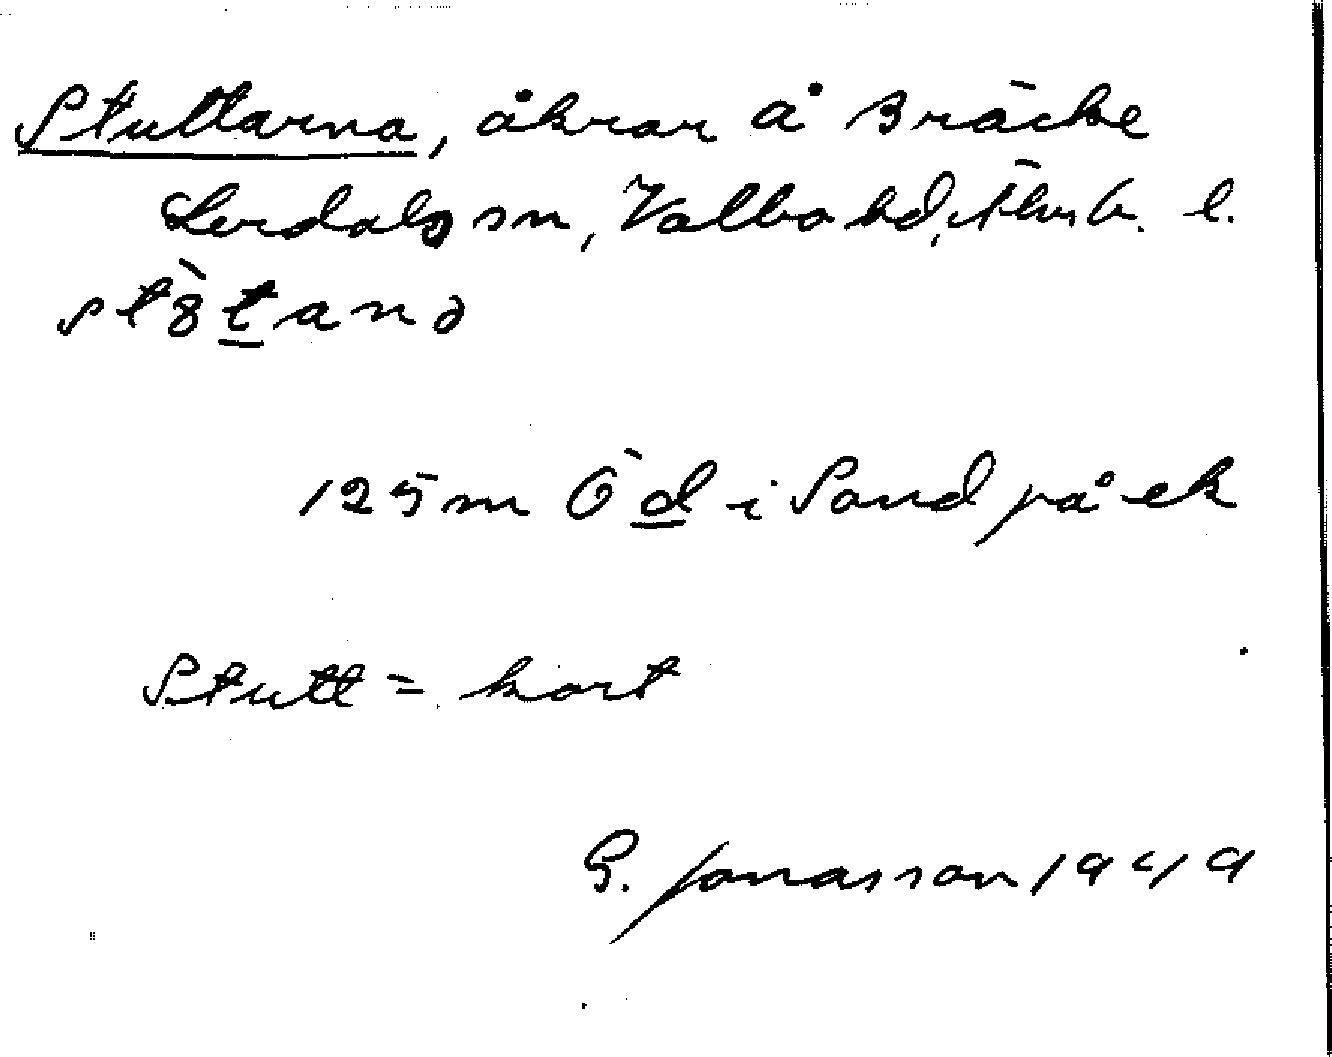 Stuttarna, åkrar å Bräcke
Lerdals sn, Valbo hd, Älvsb. l.
stȍtanə
125 m Ö d i Sand på ek
Stutt = kort
G. Jonasson 1949